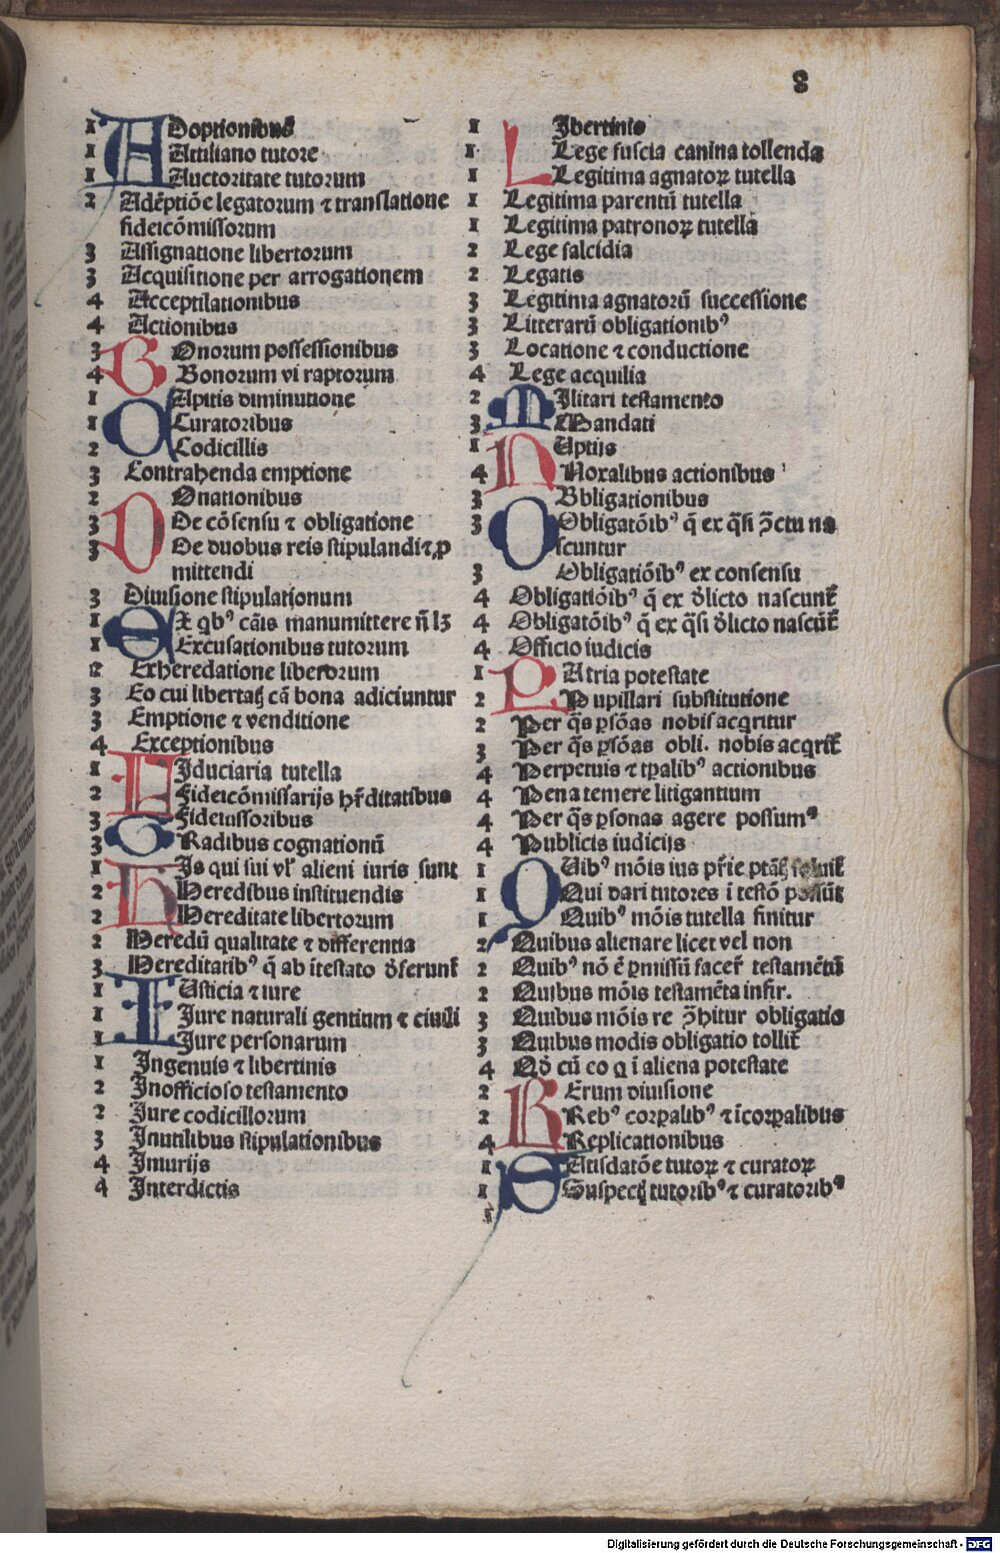 8
1 ADoptionibus
1 Attiliano tutore
1 Auctoritate tutorum
2 Adẽptiõe legatorum ⁊ translatione
fideicõmissorum
3 Assignatione libertorum
3 Acquisitione per arrogationem
4 Acceptilationibus
4 Actionibus
3 BOnorum possessionibus
4 Bonorum vi raptorum
1 CApitis diminutione
1 Curatoribus
2 Codicillis
3 Contrahenda emptione
2 DOnationibus
3 De cõsensu ⁊ obligatione
3 De duobus reis stipulandi ⁊ ꝓ
mittendi
3 Diuisione stipulationum
1 EX qbꝰ cãis manumittere ñ lꝫ
1 Excusationibus tutorum
2 Exheredatione liberorum
3 Eo cui libertatꝭ cã bona adiciuntur
3 Emptione ⁊ venditione
4 Exceptionibus
1 FIduciaria tutella
2 Fideicõmissarijs hr̃ditatibus
3 Fideiussoribus
3 GRadibus cognationũ
1 HIs qui sui vl' alieni iuris sunt
2 Heredibus instituendis
2 Hereditate libertorum
2 Heredũ qualitate ⁊ differentia
3 Hereditatibꝰ q̃ ab ĩtestato d̓ferunt̃
1 IUsticia ⁊ iure
1 Iure naturali gentium ⁊ ciuili
1 Iure personarum
1 Ingenuis ⁊ libertinis
2 Inofficioso testamento
2 Iure codicillorum
3 Inutilibus stipulationibus
4 Iniurijs
4 Interdictis
1 LIbertinis
1 Lege fuscia canina tollenda
1 Legitima agnatoꝝ tutella
1 Legitima parentũ tutella
1 Legitima patronoꝝ tutella
2 Lege falcidia
2 Legatis
3 Legitima agnatorũ successione
3 Litterarũ obligationibꝰ
3 Locatione ⁊ conductione
4 Lege acquilia
2 MIlitari testamento
3 Mandati
1 NUptijs
4 Noxalibus actionibus
3 OBbligationibus
3 Obligatõibꝰ q̃ ex q̃si ꝯ̃ctu na
scuntur
3 Obligatiõibꝰ ex consensu
4 Obligatiõibꝰ q̃ ex d̓licto nascunt̃
4 Obligatõibꝰ q̃ ex q̃si d̓licto nascũt̃
4 Officio iudicis
1 PAtria potestate
2 Pupillari substitutione
2 Per q̃s ꝑsõas nobis acqritur
3 Per q̃s ꝑsõas obli. nobis acqrit̃
4 Perpetuis ⁊ tꝑalibꝰ actionibus
4 Pena temere litigantium
4 Per q̃s ꝑsonas agere possumꝰ
4 Publicis iudicijs
1 QUibꝰ mõis ius pr̃ie ptãtꝭ soluit̃
1 Qui dari tutores ĩ testõ possũt
1 Quibꝰ mõis tutella finitur
2 Quibus alienare licet vel non
2 Quibꝰ nõ ẽ ꝑmissũ facer̃ testamẽtũ
2 Quibus mõis testamẽta infir.
3 Quibus mõis re ꝯ̃hitur obligatio
3 Quibus modis obligatio tollit̃
4 Qd̓ cũ eo q ĩ aliena potestate
2 RErum diuisione
2 Rebꝰ corꝑalibꝰ ⁊ ĩcorꝑalibus
4 Replicationibus
1 SAtisdatõe tutoꝝ ⁊ curatoꝝ
1 Suspectꝭ tutoribꝰ ⁊ curatoribꝰ
Digitalisierung gefördert durch die Deutsche Forschungsgemeinschaft - DFG